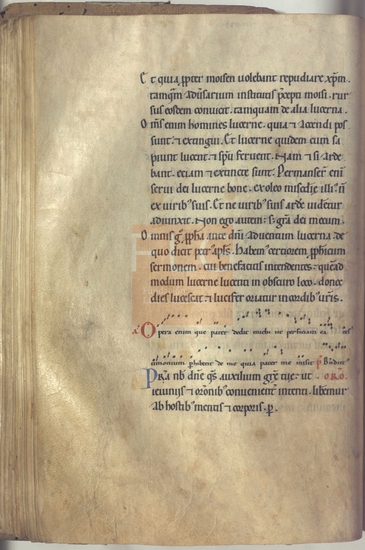 Et quia ppter moisen volebant repudiare xpm.
tamqm adusarium institutis pcepti moisi. rur
sus eosdem convicit. tamquam de alia lucerna.
Oms enim homines lucerne. quia ⁊ accendi pos
sunt. ⁊ extingui. Et lucerne quidem cum sa
piunt lucent. ⁊ spu fervent. Nam ⁊ si arde
bant. ⁊ extincte sunt. Permanser eni
servi dei lucerne bone. ex oleo miscdie illi. n
ex virib suis. Et ne virib suis arde videtur
adiunxit. Non ego autem. s; gra dei mecum.
Omnis g ppha ante dni adventum lucerna de
quo dicit petr apls. Habem certiorem ppheticum
sermonem. cui benefacitis intendentes. quead
modum lucerne lucenti in obscuro loco. donec
dies lucescat. ⁊ lucifer oriatur in cordib uris.
Opera enim que pater dedit michi ut pficiam ea
testimonium phibent de me quia pater me misit
Pra nb dne qs auxilium gre tue. ut ORO.
ieiuniis ⁊ oronib convenient intenti. liberemur
ab hostib mentis ⁊ corporis. p.